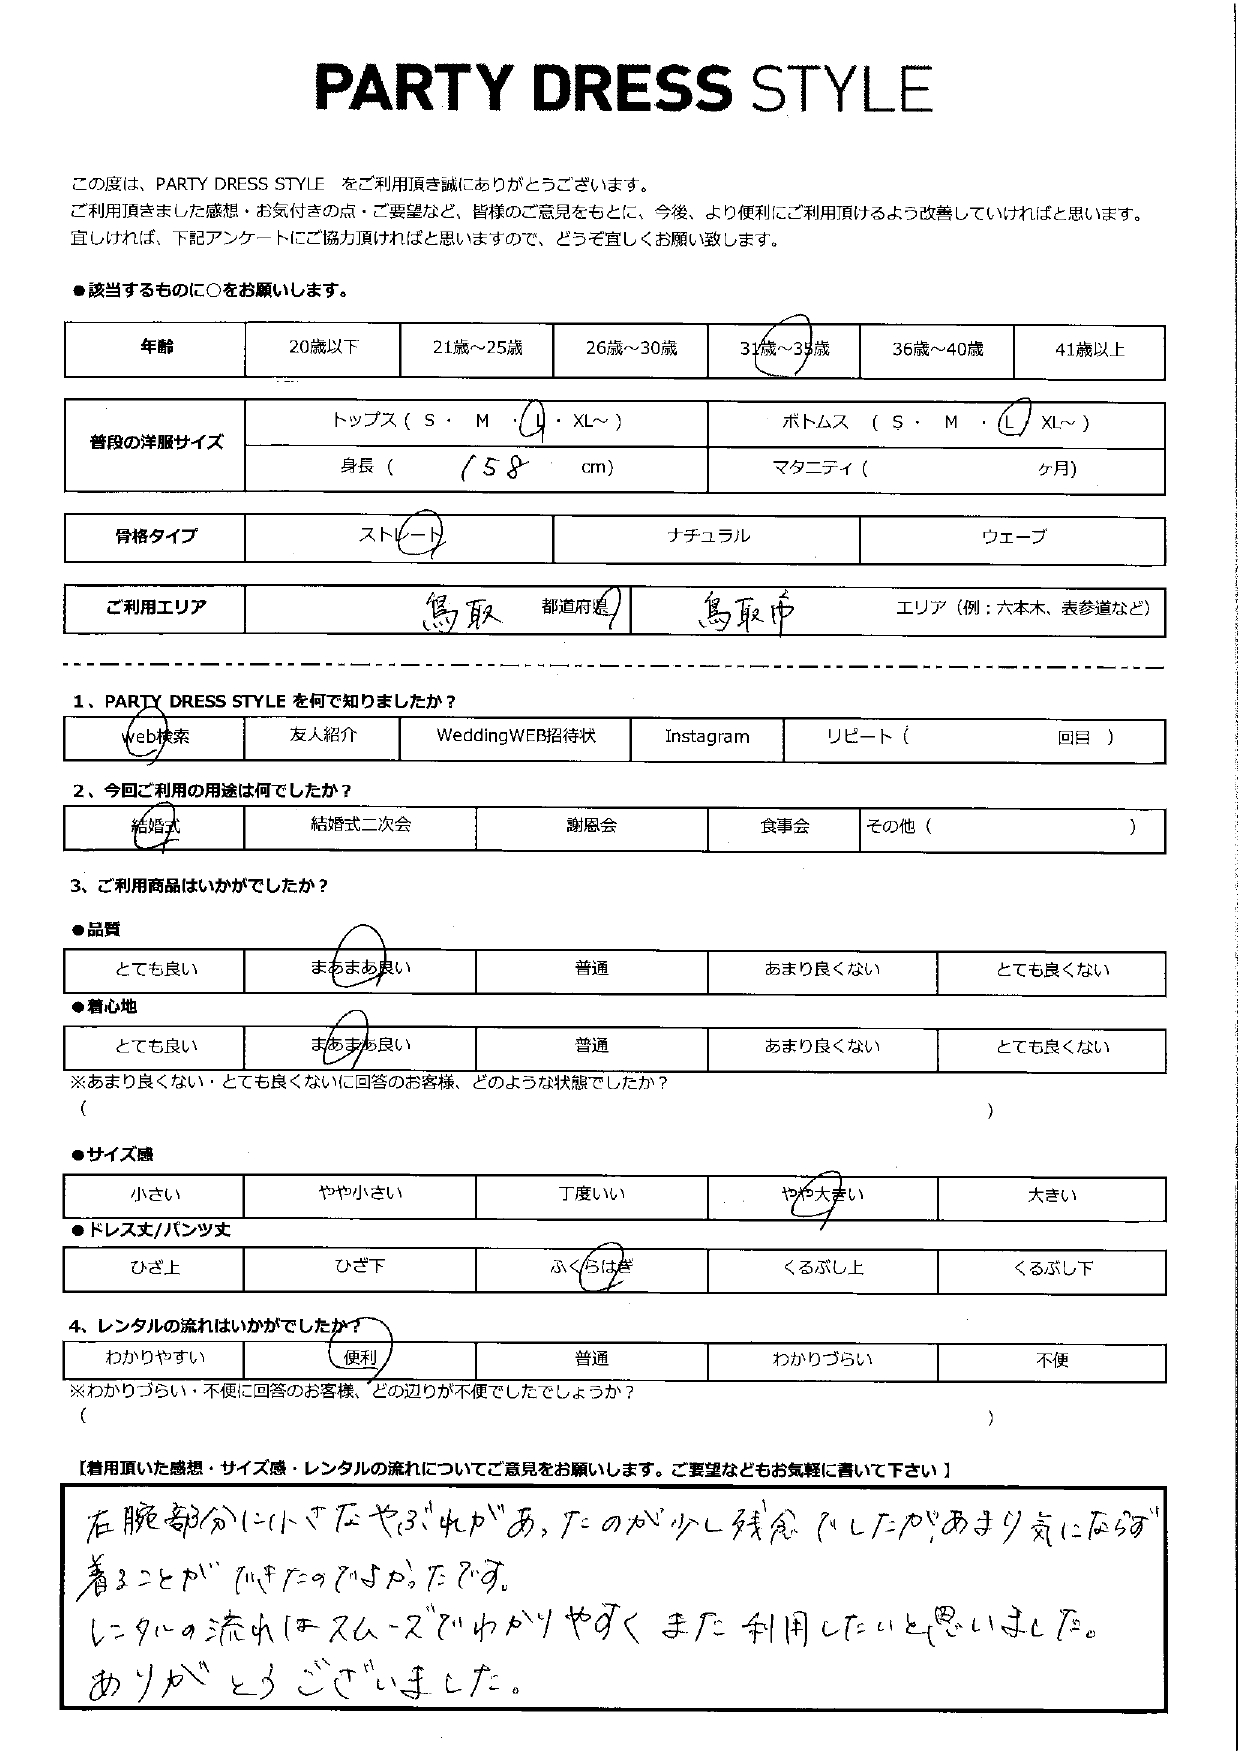 PARTY DRESS STYLE
この度は、PARTY DRESS STYLE をご利用頂き誠にありがとうございます。
ご利用頂きました感想・お気付きの点・ご要望など、皆様のご意見をもとに、今後、より便利にご利用頂けるよう改善していければと思います。
宜しければ、下記アンケートにご協力頂ければと思いますので、どうぞ宜しくお願い致します。
●該当するものに○をお願いします。
年齢 20歳以下 21歳～25歳 26歳～30歳 31歳～35歳 36歳～40歳 41歳以上
普段の洋服サイズ トップス ( S ・ M ・ L ・ XL～ ) ボトムス ( S ・ M ・ L XL～ )
身長 ( 158 cm) マタニティ ( ケ月)
骨格タイプ ストレート ナチュラル ウェーブ
ご利用エリア 鳥取 都道府県 鳥取市 エリア（例：六本木、表参道など）
1、PARTY DRESS STYLE を何で知りましたか？
web検索 友人紹介 WeddingWEB招待状 Instagram リピート ( 回目 )
2、今回ご利用の用途は何でしたか？
結婚式 結婚式二次会 謝恩会 食事会 その他 ( )
3、ご利用商品はいかがでしたか？
●品質
とても良い まあまあ良い 普通 あまり良くない とても良くない
●着心地
とても良い まあまあ良い 普通 あまり良くない とても良くない
※あまり良くない・とても良くないに回答のお客様、どのような状態でしたか？
( )
●サイズ感
小さい やや小さい 丁度いい やや大きい 大きい
●ドレス丈/パンツ丈
ひざ上 ひざ下 ふくらはぎ くるぶし上 くるぶし下
4、レンタルの流れはいかがでしたか？
わかりやすい 便利 普通 わかりづらい 不便
※わかりづらい・不便に回答のお客様、どの辺りが不便でしたでしょうか？
( )
【着用頂いた感想・サイズ感・レンタルの流れについてご意見をお願いします。ご要望などもお気軽に書いて下さい 】
右腕部分に小さなやぶれがあったのが少し残念でしたが、あまり気にならず
着ることができたのでよかったです。
レンタルの流れはスムーズでわかりやすくまた利用したいと思いました。
ありがとうございました。